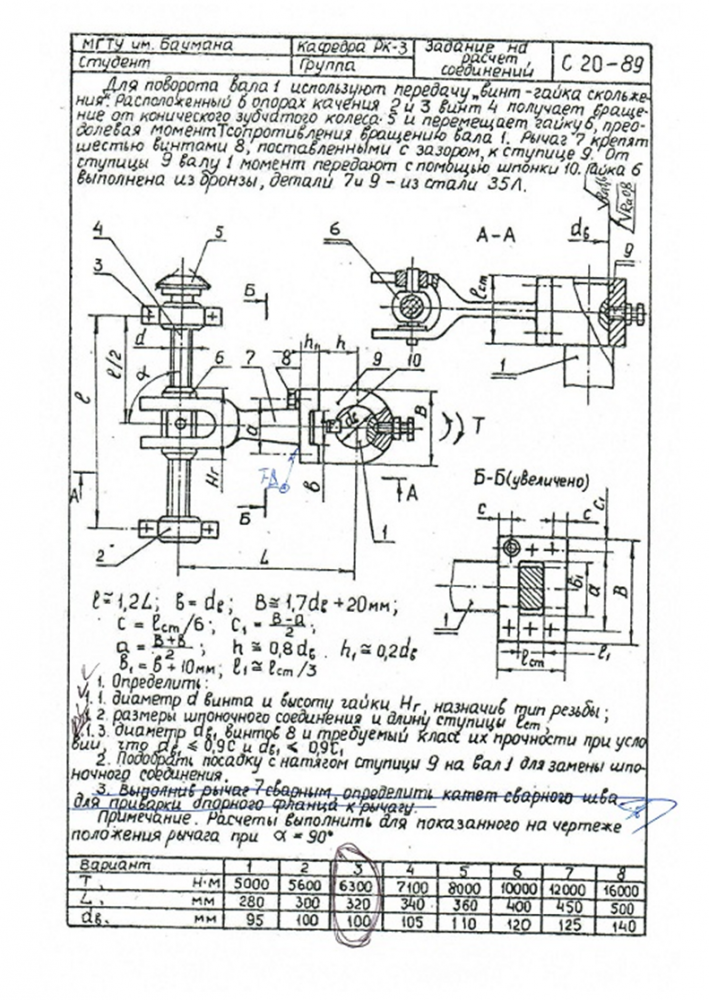 МГТУ им. Баумана Кафедра РК-3 Задание на расчет соединений С 20-89
Студент Группа
Для поворота вала 1 используют передачу „винт-гайка скольже-
ния". Расположенный в опорах качения 2 и 3 винт 4 получает враще-
ние от конического зубчатого колеса 5 и перемещает гайку 6, прео-
долевая момент Т сопротивления вращению вала 1. Рычаг 7 крепят
шестью винтами 8, поставленными с зазором, к ступице 9. От
ступицы 9 валу 1 момент передают с помощью шпонки 10. Гайка 6
выполнена из бронзы, детали 7 и 9 - из стали 35Л.
А-А
6
dв
9
lст
1
4
5
3
Б
d
l/2
α
l
6
7
8
h1
h
9
10
dв
a
B
T
Hг
в
А
А
Б
1
2
L
Б-Б (увеличено)
c
c
c1
в1
a
B
1
lст
l1
l ≅ 1,2L; в = dв; B ≅ 1,7dв + 20мм;
c = lст/6; c1 = B-a/2;
a = B+в/2; h ≅ 0,8dв. h1 ≅ 0,2dв
в1 = в + 10мм; l1 ≅ lст/3
1. Определить:
1.1. диаметр d винта и высоту гайки Hг, назначив тип резьбы;
1.2. размеры шпоночного соединения и длину ступицы lст;
1.3. диаметр dв1 винтов 8 и требуемый класс их прочности при усло-
вии, что dв1 ⩽ 0,9c и dв1 ⩽ 0,9c1
2. Подобрать посадку с натягом ступицы 9 на вал 1 для замены шпо-
ночного соединения.
3. Выполнив рычаг 7 сварным, определить катет сварного шва
для приварки опорного фланца к рычагу.
Примечание. Расчеты выполнить для показанного на чертеже
положения рычага при α = 90°
Вариант 1 2 3 4 5 6 7 8
Т, Н·м 5000 5600 6300 7100 8000 10000 12000 16000
L, мм 280 300 320 340 360 400 450 500
dв, мм 95 100 100 105 110 120 125 140